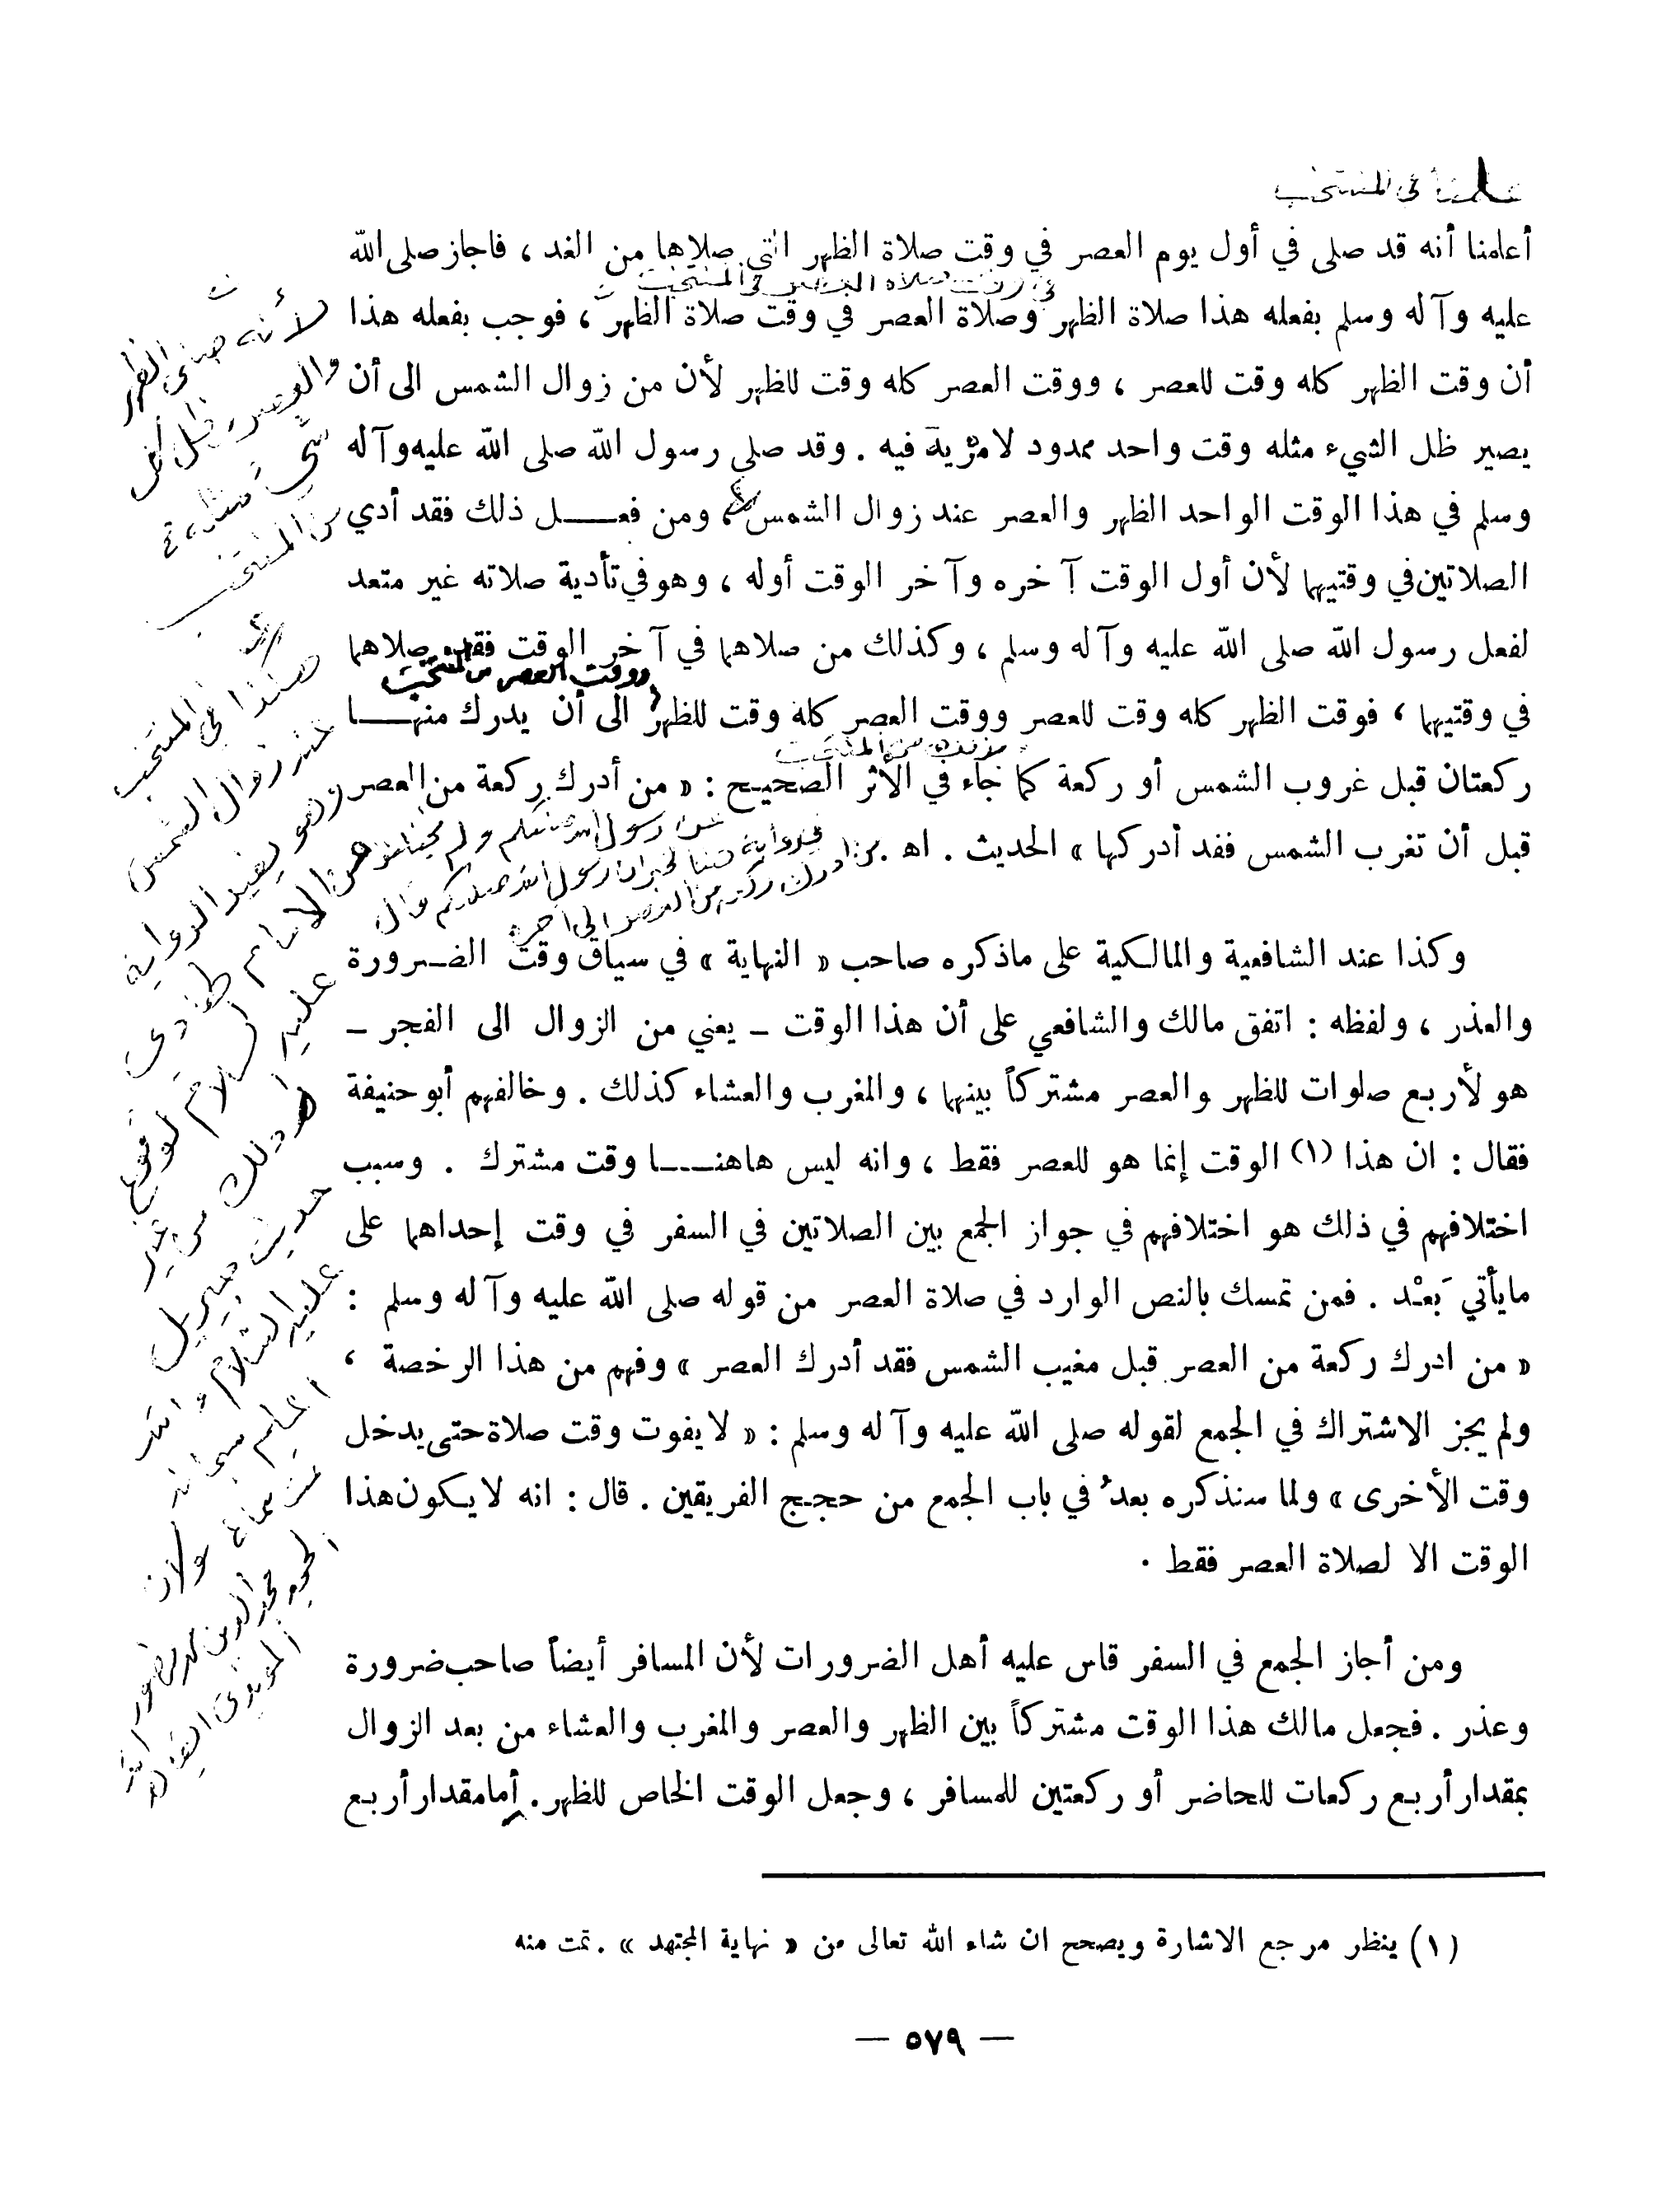 علمنا في المنتخب
أعلمنا أنه قد صلى في أول يوم العصر في وقت صلاة الظهر التي صلاها من الغد ، فاجاز صلى الله
في وقت صلاة العصر في المنتخب
عليه وآله وسلم بفعله هذا صلاة الظهر وصلاة العصر في وقت صلاة الظهر ، فوجب بفعله هذا
أن وقت الظهر كله وقت للعصر ، ووقت العصر كله وقت للظهر لأن من زوال الشمس الى أن
يصير ظل الشيء مثله وقت واحد ممدود لا مزية فيه . وقد صلى رسول الله صلى الله عليه وآله
وسلم في هذا الوقت الواحد الظهر والعصر عند زوال الشمس ، ومن فعـــل ذلك فقد أدي
الصلاتين في وقتيهما لأن أول الوقت آخره وآخر الوقت أوله ، وهو في تأدية صلاته غير متعد
لفعل رسول الله صلى الله عليه وآله وسلم ، وكذلك من صلاهما في آخر الوقت فقد صلاهما
ووقت العصر من المنتخب
في وقتيهما ، فوقت الظهر كله وقت للعصر ووقت العصر كله وقت للظهر الى أن يدرك منهـــا
من المنتخب
ركعتان قبل غروب الشمس أو ركعة كما جاء في الأثر الصحيح : « من أدرك ركعة من العصر
قبل أن تغرب الشمس فقد أدركها » الحديث . اهـ .
وكذا عند الشافعية والمالكية على ماذكره صاحب « النهاية » في سياق وقت الضرورة
والعذر ، ولفظه : اتفق مالك والشافعي على أن هذا الوقت – يعني من الزوال الى الفجر –
هو لأربع صلوات للظهر والعصر مشتركاً بينهما ، والمغرب والعشاء كذلك . وخالفهم أبو حنيفة
فقال : ان هذا (١) الوقت إنما هو للعصر فقط ، وانه ليس هاهنـــا وقت مشترك . وسبب
اختلافهم في ذلك هو اختلافهم في جواز الجمع بين الصلاتين في السفر في وقت إحداهما على
مايأتي بَعْد . فمن تمسك بالنص الوارد في صلاة العصر من قوله صلى الله عليه وآله وسلم :
« من ادرك ركعة من العصر قبل مغيب الشمس فقد أدرك العصر » وفهم من هذا الرخصة ،
ولم يجز الاشتراك في الجمع لقوله صلى الله عليه وآله وسلم : « لا يفوت وقت صلاة حتى يدخل
وقت الأخرى » ولما سنذكره بعدُ في باب الجمع من حجج الفريقين . قال : انه لا يكون هذا
الوقت الا لصلاة العصر فقط .
ومن أجاز الجمع في السفر قاس عليه أهل الضرورات لأن المسافر أيضاً صاحب ضرورة
وعذر . فجعل مالك هذا الوقت مشتركاً بين الظهر والعصر والمغرب والعشاء من بعد الزوال
بمقدار أربع ركعات للحاضر أو ركعتين للمسافر ، وجعل الوقت الخاص للظهر. إمامقدار أربع
(١) ينظر مرجع الاشارة ويصحح ان شاء الله تعالى من « نهاية المجتهد » . تمت منه
— ٥٧٩ —
لأنه صلى الظهر
والعصر
من المنتخب
هكذا في المنتخب
عند زوال الشمس
عليه السلام
حديث جبريل
عليه السلام